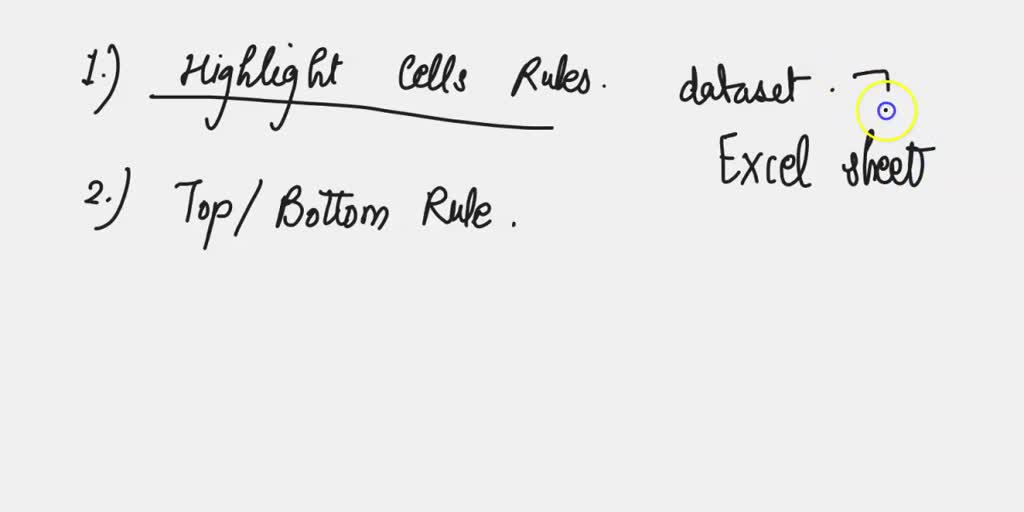 1.) Highlight Cells Rules.
dataset.
Excel sheet
2.) Top/Bottom Rule.